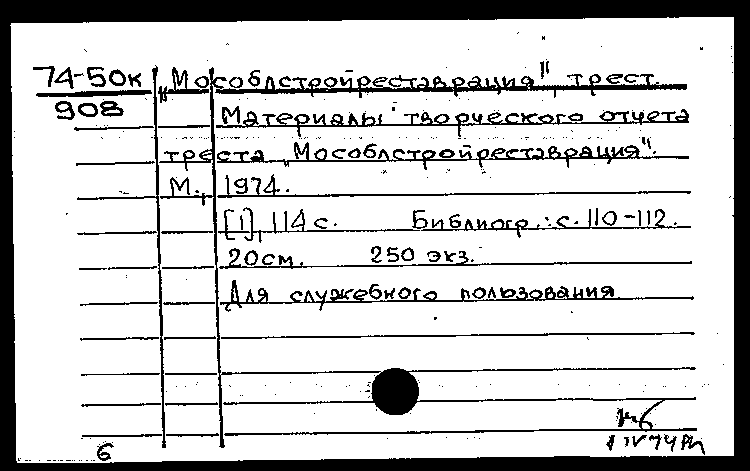 74-50к „Мособлстройреставрация", трест.
908
Материалы творческого отчета
треста „Мособлстройреставрация".
М., 1974.
[1], 114 с. Библиогр.: с. 110-112.
20см. 250 экз.
Для служебного пользования
6